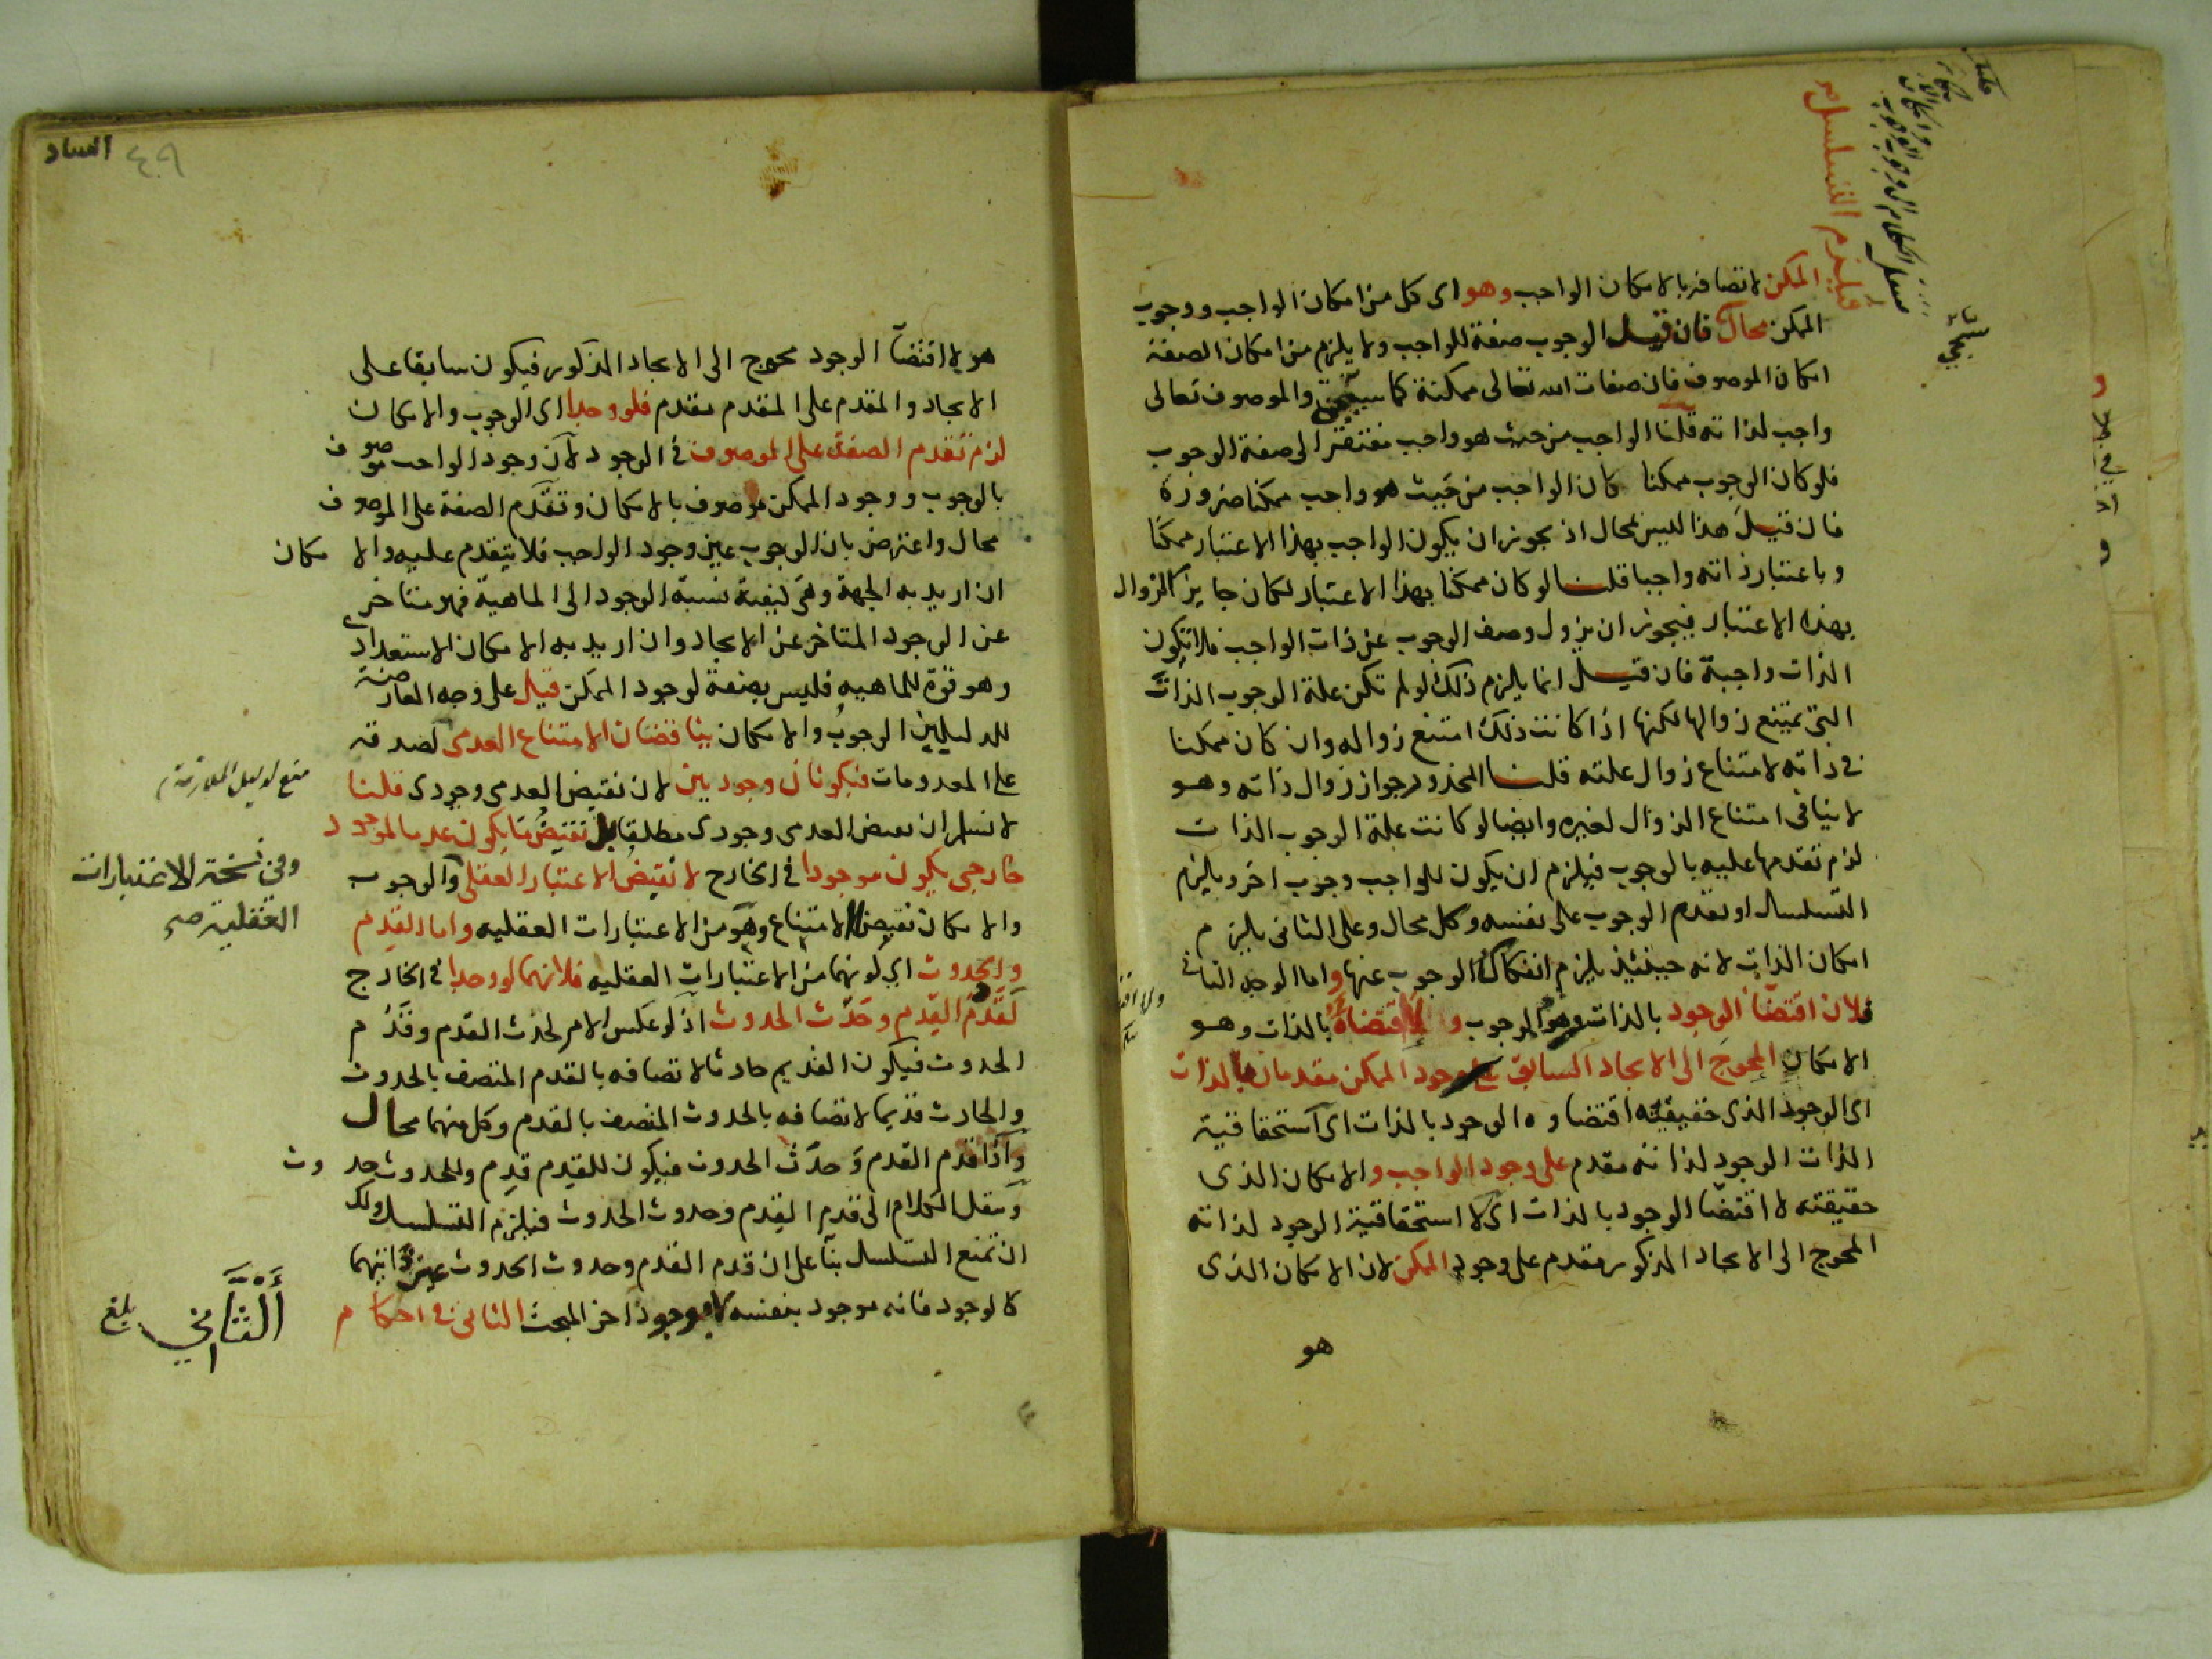 الممكن لاتصافه بالامكان الواجب وهو اى كل من امكان الواجب ووجوب
الممكن محال فان قيل الوجوب صفة للواجب ولا يلزم من امكان الصفة
امكان الموصوف فان صفات الله تعالى ممكنة كما سيجئ والموصوف تعالى
واجب لذاته قلنا الواجب من حيث هو واجب مفتقر الى صفة الوجوب
فلو كان الوجوب ممكنا كان الواجب من حيث هو واجب ممكنا ضرورة
فان قيل هذا ليس بمحال اذ يجوز ان يكون الواجب بهذا الاعتبار ممكنا
وباعتبار ذاته واجبا قلنا لو كان ممكنا بهذا الاعتبار لكان جايز الزوال
بهذا الاعتبار فيجوز ان يزول وصف الوجوب عن ذات الواجب فلا تكون
الذات واجبة فان قيل انما يلزم ذلك لو لم تكن علة الوجوب الذات
التى يمتنع زوالها لكنها اذا كانت ذلك امتنع زواله وان كان ممكنا
فى ذاته لامتناع زوال علته قلنا المحذور جواز زوال ذاته وهو
لا ينافى امتناع الزوال لغيره وايضا لو كانت علة الوجوب الذات
لزم تقدمها عليه بالوجوب فيلزم ان يكون للواجب وجوب اخر ويلزم
التسلسل او تقدم الوجوب على نفسه وكل محال وعلى الثانى يلزم
امكان الذات لانه حينئذ يلزم انفكاك الوجوب عنها واما الوجه الثانى
فلان اقتضا الوجود بالذات وهو الوجوب و لا اقتضاه بالذات وهو
الامكان المحوج الى الايجاد السابق على وجود الممكن مقدمان بالذات
اى الوجود الذى حقيقته اقتضاوه الوجود بالذات اى استحقاقية
الذات الوجود لذاته مقدم على وجود الواجب والامكان الذى
حقيقته لا اقتضا الوجود بالذات اى لا استحقاقية الوجود لذاته
المحوج الى الايجاد المذكور مقدم على وجود الممكن لان الامكان الذى
هو
فيلزم التسلسل
هو لا اقتضآ الوجود محوج الى الايجاد المذكور فيكون سابقا على
الايجاد والمقدم على المقدم مقدم فلو وجدا اى الوجوب والامكان
لزم تقدم الصفة على الموصوف فى الوجود لان وجود الواجب موصوف
بالوجوب ووجود الممكن موصوف بالامكان وتقدم الصفة على الموصوف
محال واعترض بان الوجوب عين وجود الواجب فلا يتقدم عليه والامكان
ان اريد به الجهة وهى كيفية نسبة الوجود الى الماهية فهو متاخر
عن الوجود المتاخر عن الايجاد وان اريد به الامكان الاستعدادى
وهو قوة للماهيه فليس بصفة لوجود الممكن قيل على وجه المعارضة
للدليلين الوجوب والامكان يناقضان الامتناع العدمى لصدقه
على المعدومات فيكونان وجوديين لان نقيض العدمى وجودى قلنا
لا نسلم ان نقيض العدمى وجودى مطلقا بل نقيض ما يكون عدميا لموجود
خارجى يكون موجودا فى الخارج لا نقيض الاعتبار العقلى والوجوب
والامكان نقيض الامتناع وهو من الاعتبارات العقليه واما القدم
والحدوث اى كونهما من الاعتبارات العقليه فلانهما لو وجدا فى الخارج
لقدم القدم وحدث الحدوث اذ لو عكس الامر لحدث القدم وقدم
الحدوث فيكون القديم حادثا لاتصافه بالقدم المتصف بالحدوث
والحادث قديما لاتصافه بالحدوث المتصف بالقدم وكل منهما محال
واذا قدم القدم وحدث الحدوث فيكون للقدم قدم وللحدوث حدوث
وينقل الكلام الى قدم القدم وحدوث الحدوث فيلزم التسلسل ولك
ان تمنع التسلسل بنآ على ان قدم القدم وحدوث الحدوث عين ذاتيهما
كالوجود فانه موجود بنفسه لا بوجود اخر المبحث الثانى فى احكام
منع لدليل الملازمة
وفى نسخة الاعتبارات
العقلية صح
الثانى
بلغ
٤٠٩